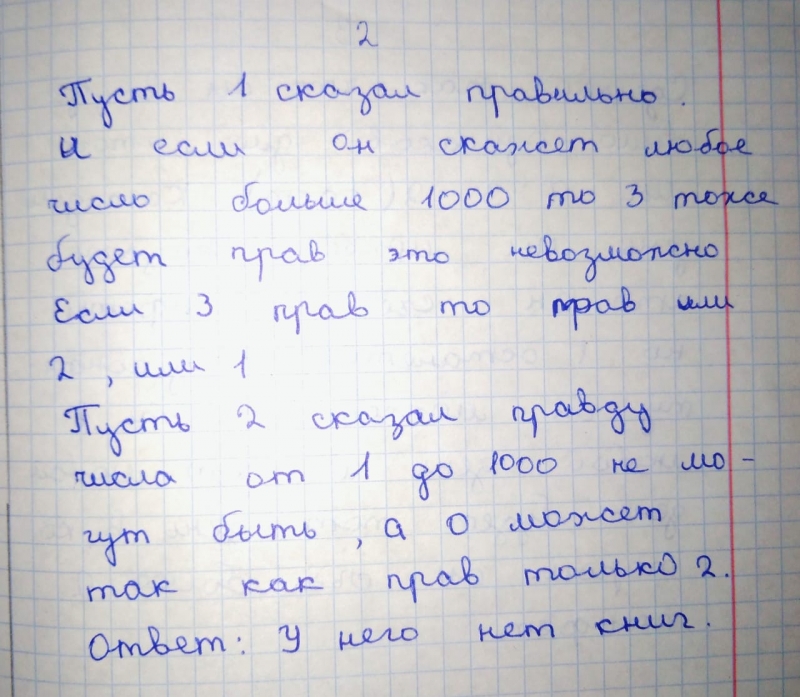 2
Пусть 1 сказал правильно.
и если он скажет любое
число больше 1000 то 3 тоже
будет прав это невозможно
Если 3 прав то прав или
2, или 1
Пусть 2 сказал правду
числа от 1 до 1000 не мо-
гут быть, а 0 может
так как прав только 2.
Ответ: У него нет книг.